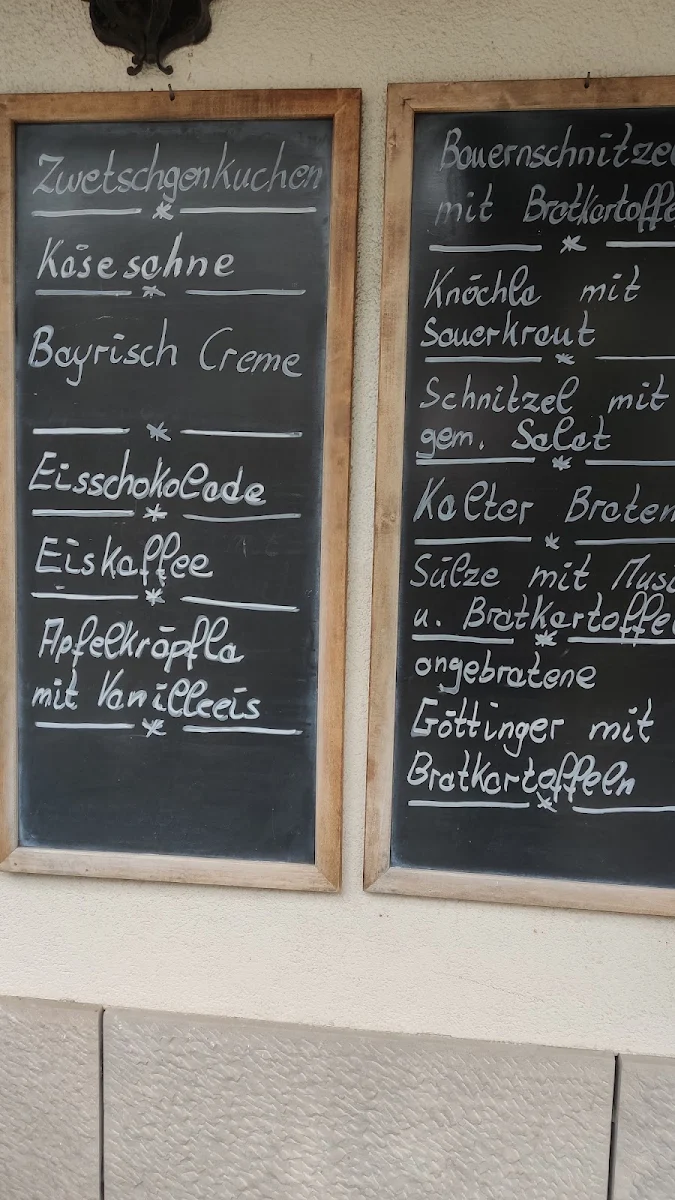 Zwetschgenkuchen
Käsesahne
Bayrisch Creme
Eisschokolade
Eiskaffee
Apfelkröpfla
mit Vanilleeis
Bauernschnitzel
mit Bratkartoffe
Knöchla mit
Sauerkraut
Schnitzel mit
gem. Salat
Kalter Braten
Sülze mit Musi
u. Bratkartoffel
angebratene
Göttinger mit
Bratkartoffeln